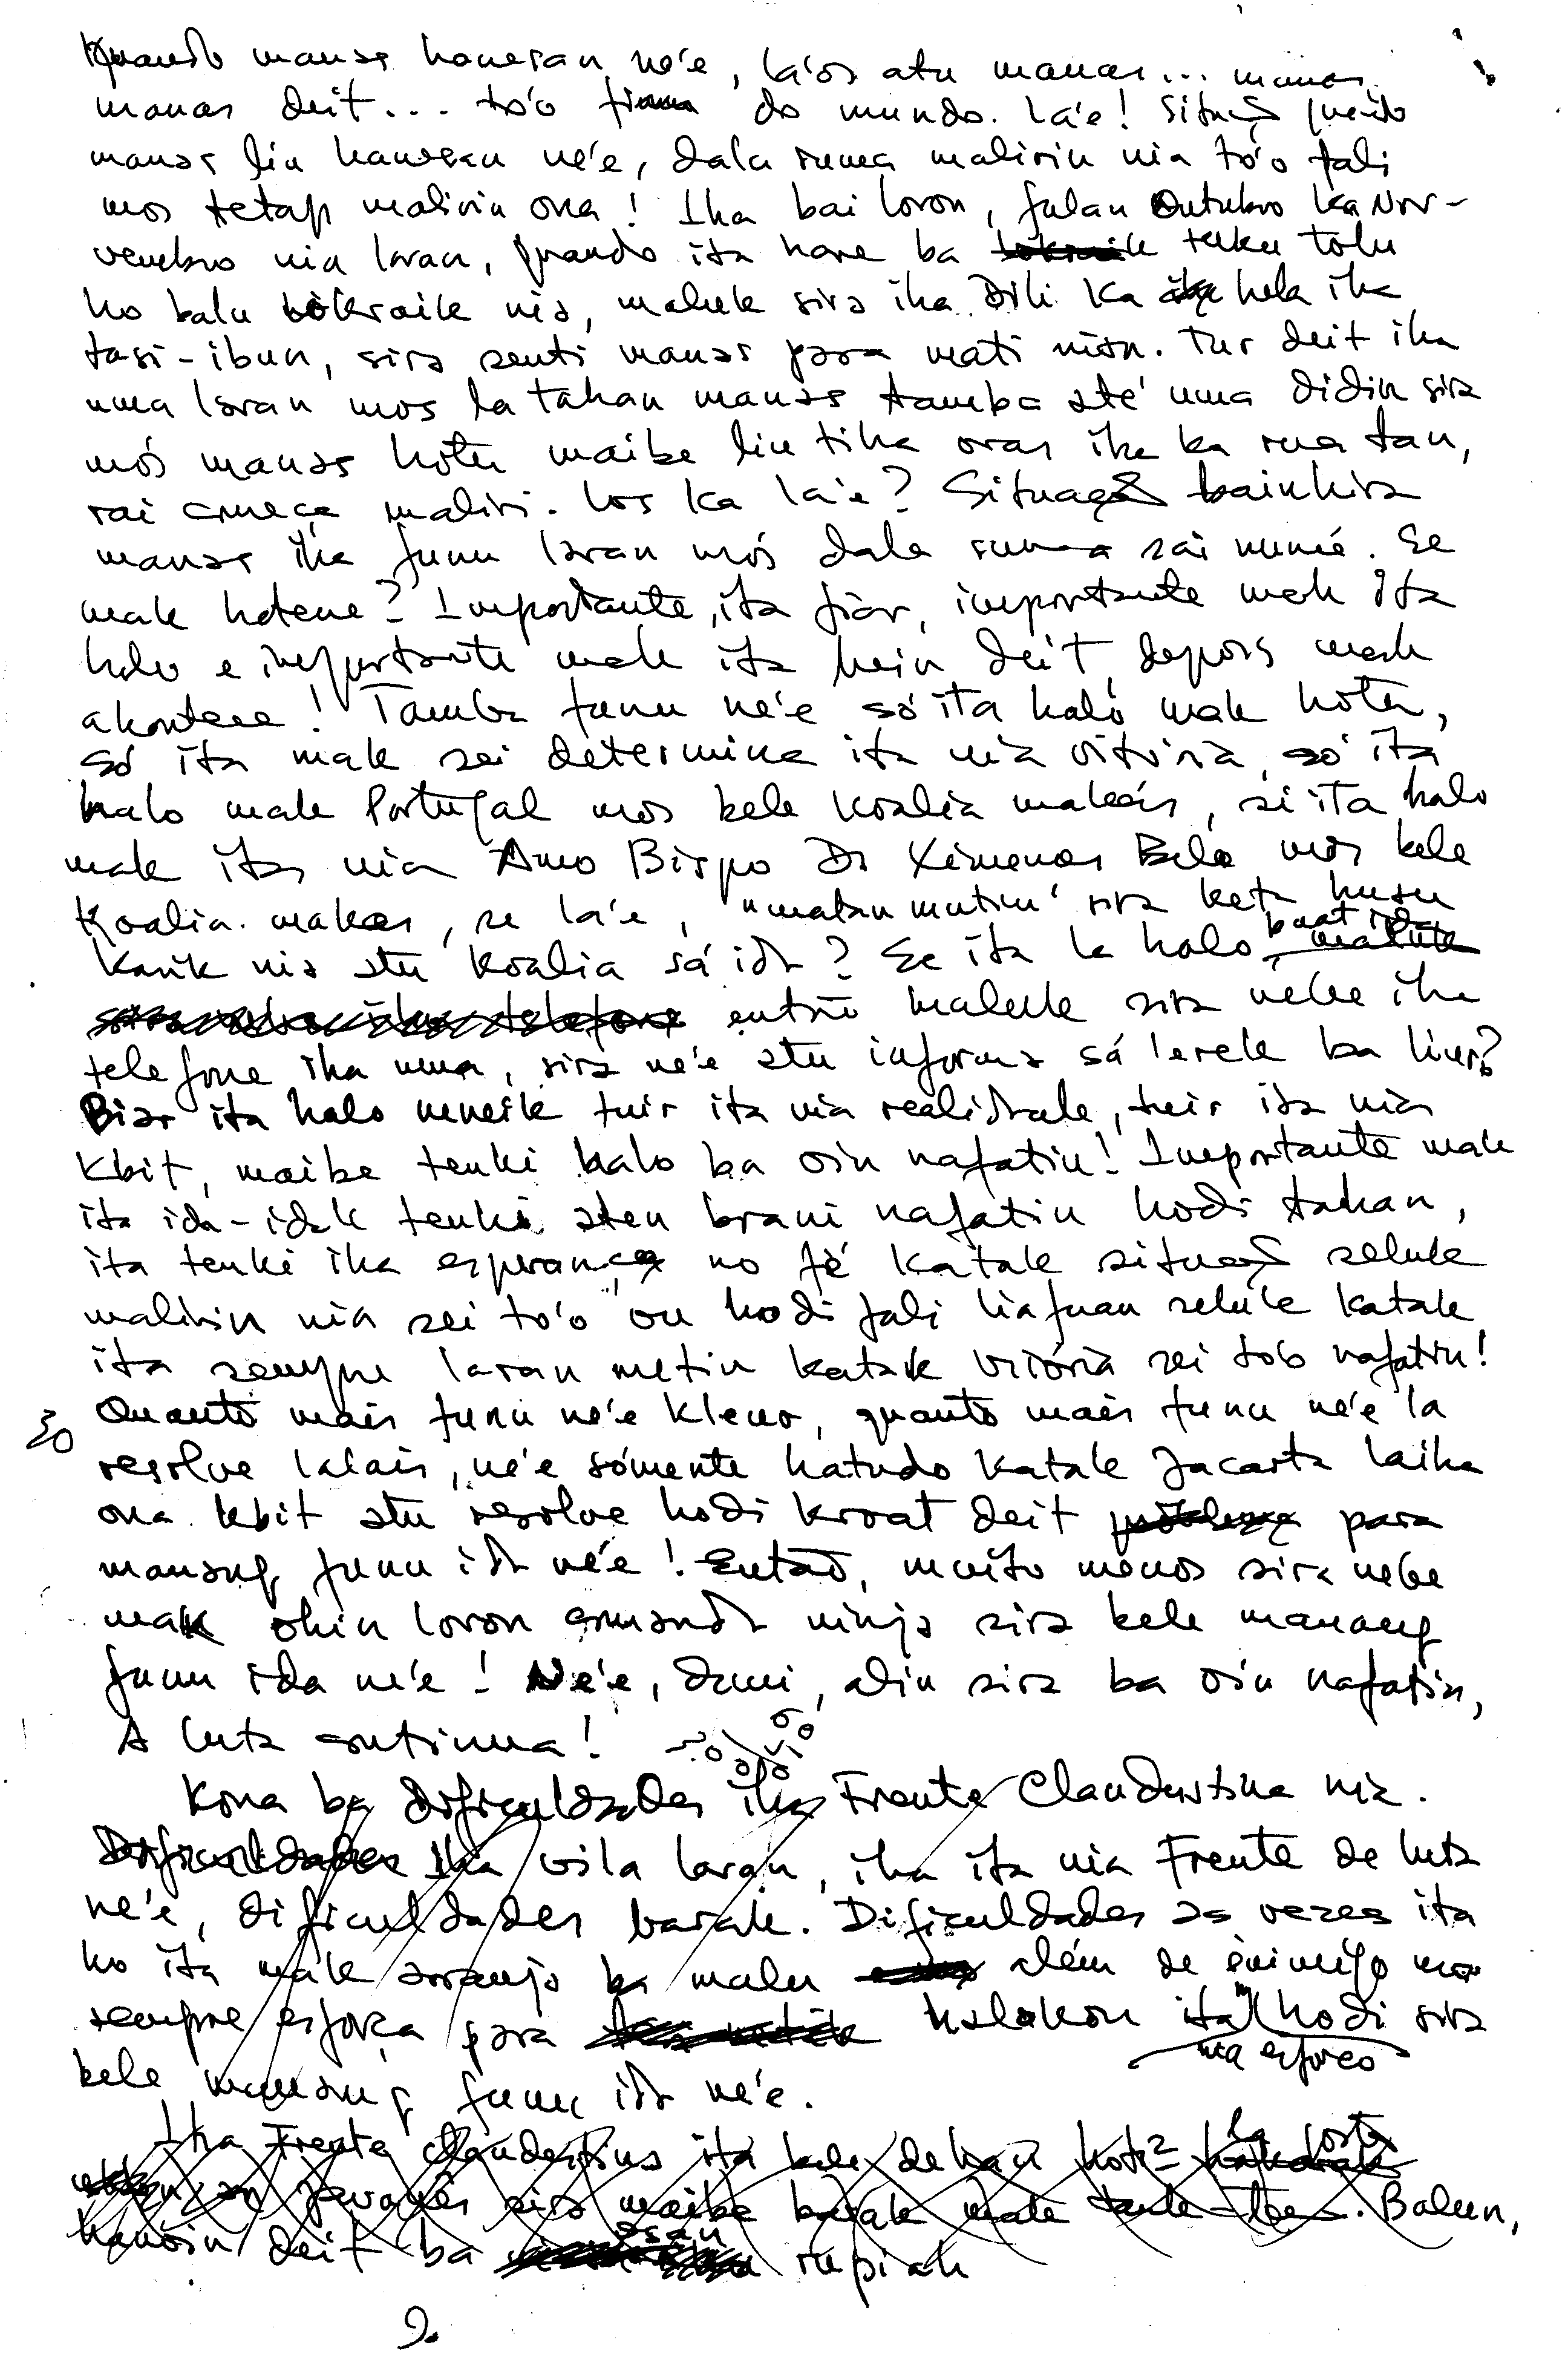 Quando manas hanesan ne'e, la'ós atu manas... manas
manas deit... to'o do mundo. La'e! Situaçã quando
manas liu hanesan ne'e, dala ruma malirin nia to'o fali
mos tetap malirin ona! Iha bai loron, fulan Outubro ka Nov-
vembro nia laran, quando ita hare ba tuku tolu
ho balu lokraik nia, maluk sira iha Dili ka hela iha
tasi-ibun, sira senti manas para mati nian. Tur deit iha
uma laran mos la tahan manas tamba até uma didin sira
mós manas hotu maibe liu tiha oras ida ka rua tan,
rai começa malirin. Los ka la'e? Situaçã bainhira
manas iha funu laran mós dala ruma sai nune'e. Se
mak hatene? Importante, ita fiar, importante mak ita
halo e importante mak ita hein deit, depois mak
akontece! Tamba funu ne'e só ita halo mak hotu,
só ita mak sei determina ita nia vitória, só ita
halo mak Portugal mos bele koalia makás, si ita halo
mak ita nia Amo Bispo D. Ximenes Belo mós bele
koalia makas, se la'e, "matan mutin" sira keta husu
karik nia atu koalia sá ida? Se ita la halo buat ida
entrão maluk sira nebe iha
telefone iha uma, sira ne'e atu informa sá lerek ba liur?
Biar ita halo neneik tuir ita nia realidade, tuir ita nia
kbit, maibe tenki halo ba oin nafatin! Importante mak
ita ida-idak tenki aten brani nafatin hodi tahan,
ita tenki iha esperança no fé katak situaçã seluk
malirin nia sei to'o ou hodi fali liafuan seluk katak
ita sempre laran metin katak vitória sei to'o nafatin!
30 Quanto mais funu ne'e kleur, quanto mais funu ne'e la
resolve lalais, ne'e sómente hatudo katak Jacarta laiha
ona kbit atu resolve hodi kroat deit para
manang funu ida ne'e! Então, muito menos sira nebe
mak ohin loron comanda ninja sira bele manang
funu ida ne'e! Ne'e, duni, alin sira ba oin nafatin,
A luta continua!
Kona ba dificuldades iha Frente Clandestina nia.
Dificuldades iha vila laran, iha ita nia Frente de luta
ne'e, dificuldades barak. Dificuldades as vezes ita
ho ita mak arranja ba malu além de inimigo mos
sempre esforça para halakon ita nia esforço hodi sira
bele manang funu ida ne'e.
Iha Frente Clandestina ita bele dehan hotu la gosta
javanês sira maibe barak mak. Balun,
hanoin deit ba osan rupiah
9.